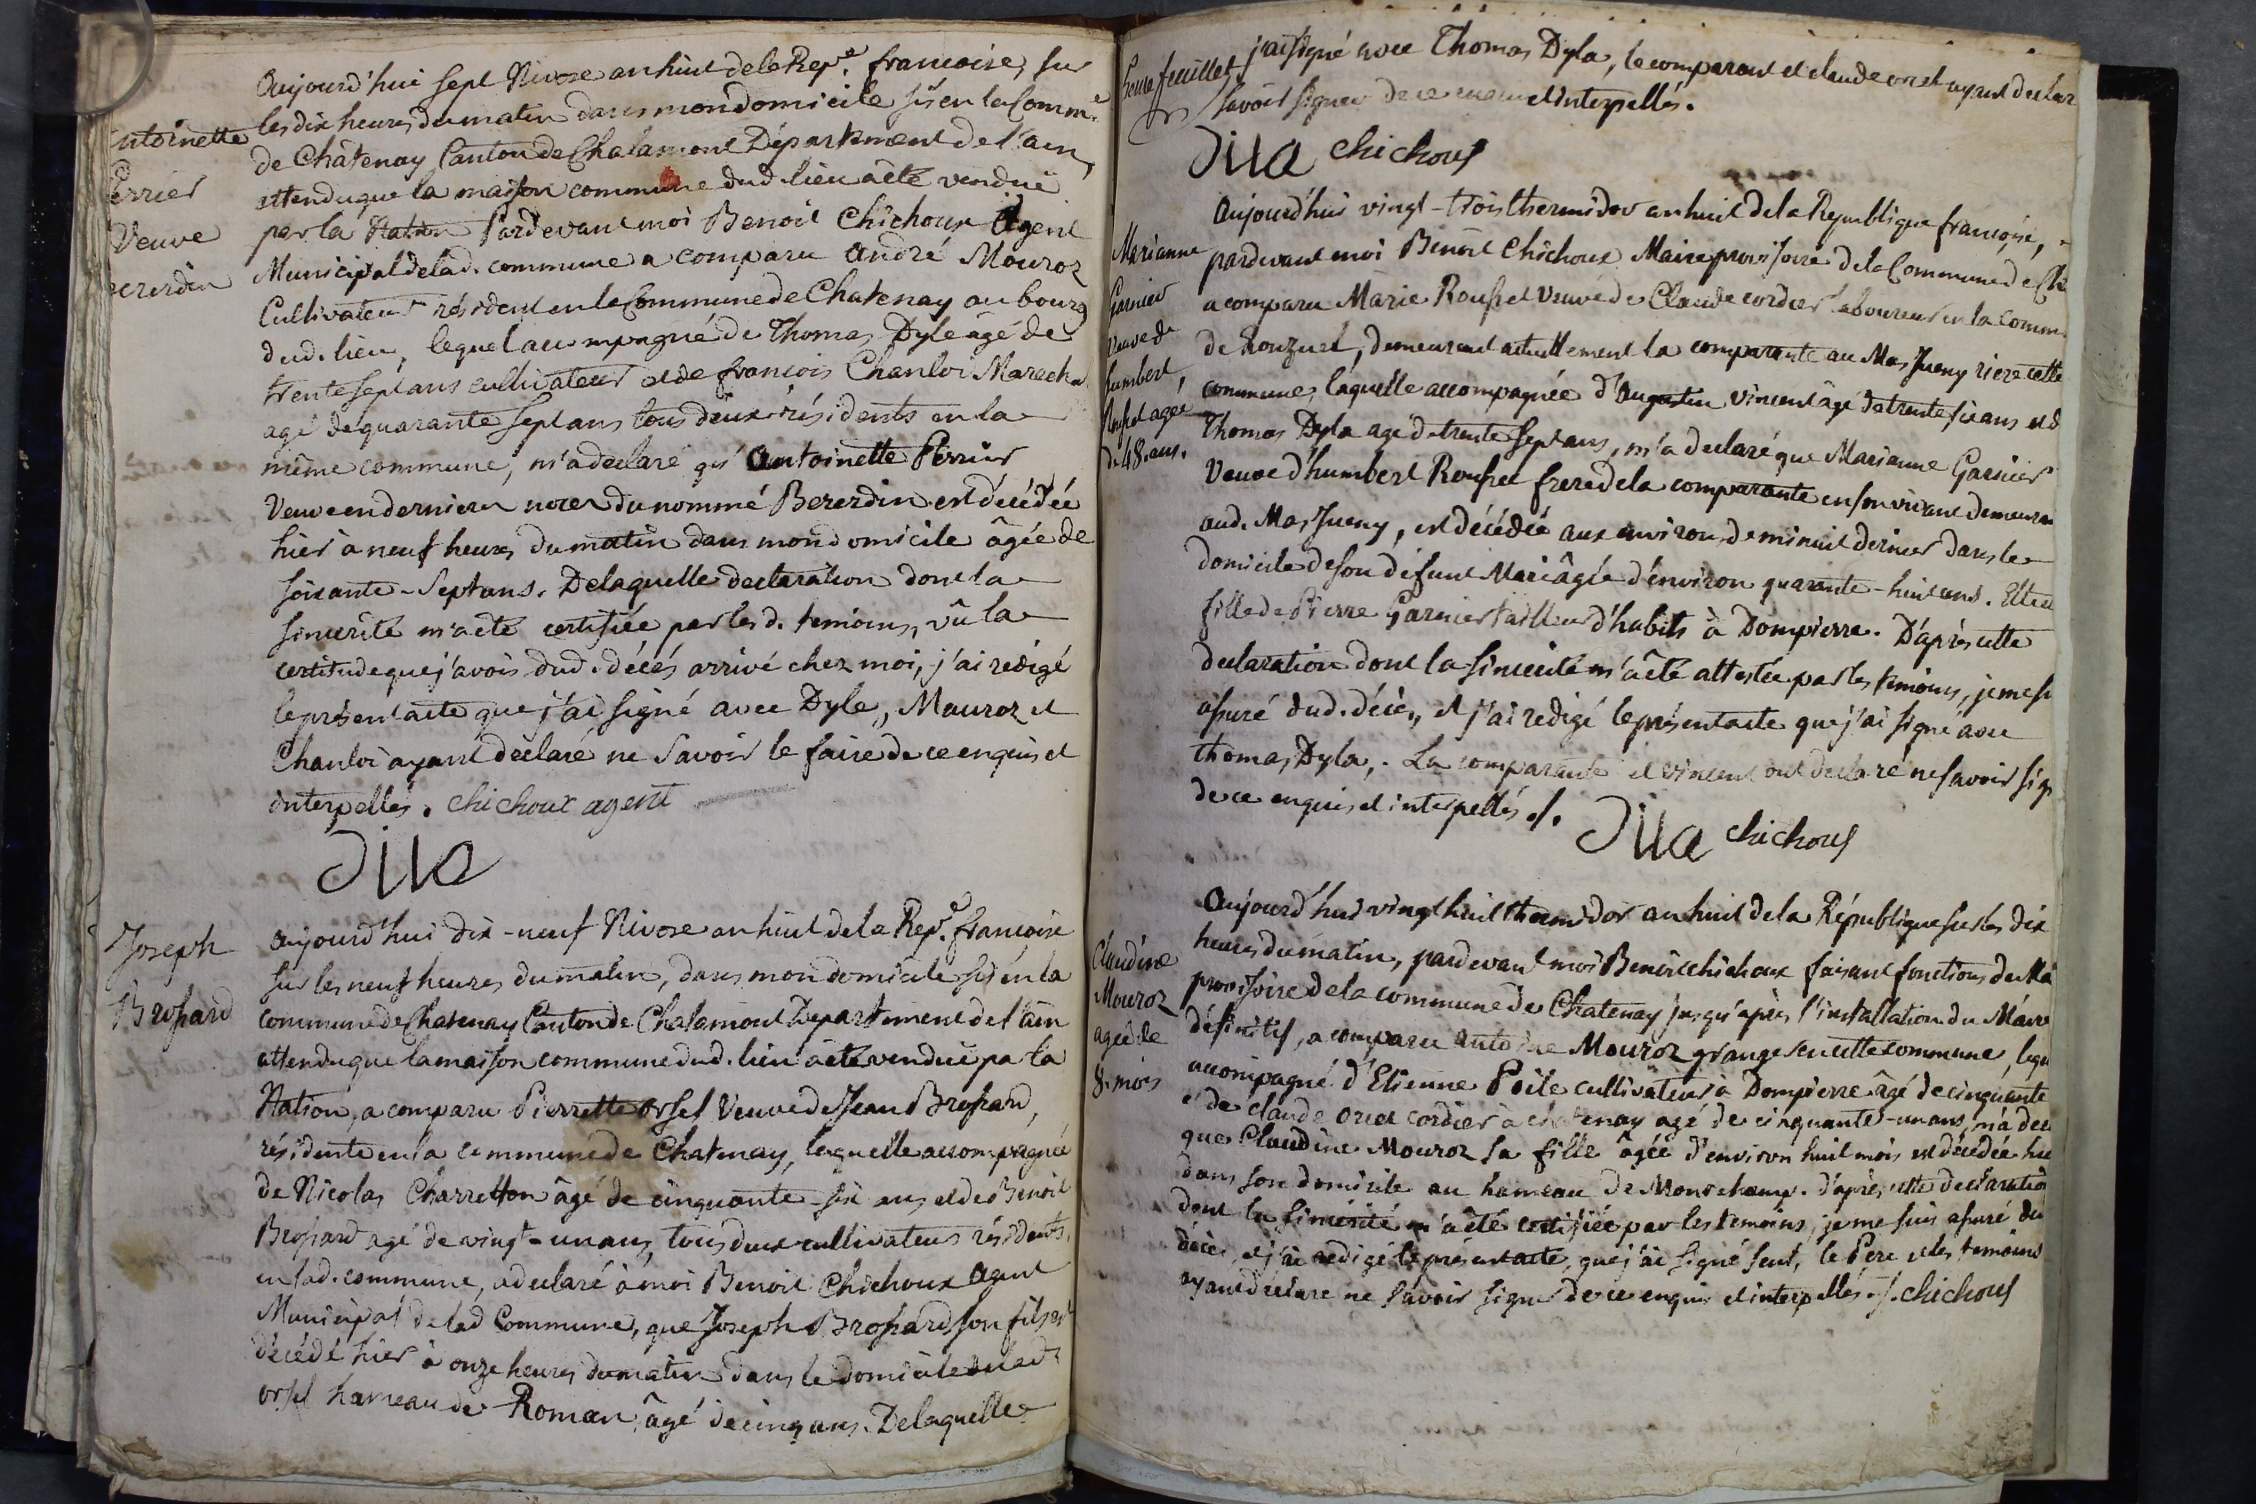 Aujourd'hui sept Nivose an huit de la Rep.e francoise, sur
les dix heures du matin dans mon domicile sis en la Comm.e
de Châtenay Canton de Chalamont Département de l'ain,
attendu que la maison commune dud. lieu a été vendue
par la Nation pardevant moi Benoit Chichoux Agent
Municipal de lad. commune a comparu André Mouroz
Cultivateur résident en la Commune de Chatenay au bourg
dud. lieu, lequel accompagné de Thomas Dyle âgé de
trente sept ans cultivateur et de francois Chanloi Marecha
agé de quarante sept ans tous deux résidents en la
même commune, m'a declaré qu'Antoinette Perrier
Veuve en dernieres noces du nommé Bererdin est décédée
hier à neuf heures du matin dans mon domicile âgée de
soixante-sept ans. De laquelle declaration dont la
sincerité m'a été certifiée par les d. temoins, vû la
certitude que j'avois dud. décés arrivé chez moi, j'ai redigé
le présent acte que j'ai signé avec Dyle, Mouroz et
Chanloi ayant declaré ne Savoir le faire de ce enquis et
interpellés. chichoux agent
Dila
ntoinette
Perrier
Veuve
ererdin
Joseph
Brossard
Aujourd'hui dix-neuf Nivose an huit de la Rep.e francoise
sur les neuf heures du matin, dans mon domicile sis en la
commune de Chatenay Canton de Chalamont Département de l'ain
attendu que la maison commune dud. lieu a été vendue par la
Nation, a comparu Pierrette orsel Veuve de Jean Brossard,
résidente en la commune de Chatenay, laquelle accompagnée
de Nicolas Charretton âgé de cinquante-six ans et de Benoit
Brossard agé de vingt-un ans, tous deux cultivateurs résidents
en lad. commune, a declaré à moi Benoit Chichoux Agent
Municipal de lad Commune, que Joseph Brossard son fils est
décédé hier à onze heures du matin dans le domicile de lad.
orsel hameau de Roman, âgé de cinq ans. De laquelle
feuillet j'ai signé avec Thomas Dyla, le comparant et claude orcel ayant declar
savoir signer de ce enquis et interpellés.
Dila chichoux
Marianne
Garnier
Veuve de
humbert
Rousset agée
de 48. ans.
Aujourd'hui vingt-trois thermidor an huit de la Republique françoise,
pardevant moi Benoit Chichoux Maire provisoire de la Commune de Ch
a comparu Marie Rousset Veuve de Claude cordier laboureur en la comm.
de Ronzuel, demeurant actuellement la comparante au Mas Jueny riere cette
commune, laquelle accompagnée d'Augustin Vincent âgé de trente six ans et d
Thomas Dyla agé de trente sept ans, m'a declaré que Marianne Garnier
Veuve d'humbert Rousset frere de la comparante en son vivant demeuran
aud. Mas Jueny, est décédée aux environ de minuit dernier dans le
domicile de son défunt Mari âgée d'environ quarante-huit ans. Elle e
fille de Pierre Garnier tailleur d'habits à Dompierre. D'après cette
declaration dont la sincerité m'a été attestée par les temoins, je me su
assuré dud. décès, et j'ai redigé le présent acte que j'ai signé avec
thomas Dyla,. La comparante et vincent ont declaré ne savoir sig
de ce enquis et interpellés ./.
Dila chichoux
Claudine
Mouroz
agée de
8. mois
Aujourd'hui vingt huit thermidor an huit de la République sur les dix
heures du matin, pardevant moi Benoit chichoux faisant fonctions de Ma
provisoire de la commune de Chatenay jusqu'après l'installation du Maire
définitif, a comparu antoine Mouroz granger en cette commune, lequ
accompagné d'Etienne Poile cultivateur à Dompierre âgé de cinquante
et de claude orcel cordier à chatenay agé de cinquante-un ans, m'a dec
que Claudine Mouroz sa fille âgée d'environ huit mois est décédée hie
dans son domicile au hameau de Monschamp. d'après cette declaration
dont la sincerité m'a été certifiée par les temoins, je me suis assuré du
décès, et j'ai redigé le présent acte, que j'ai signé seul, le Pere et les temoins
ayant declaré ne savoir signer de ce enquis et interpellés ./. chichoux